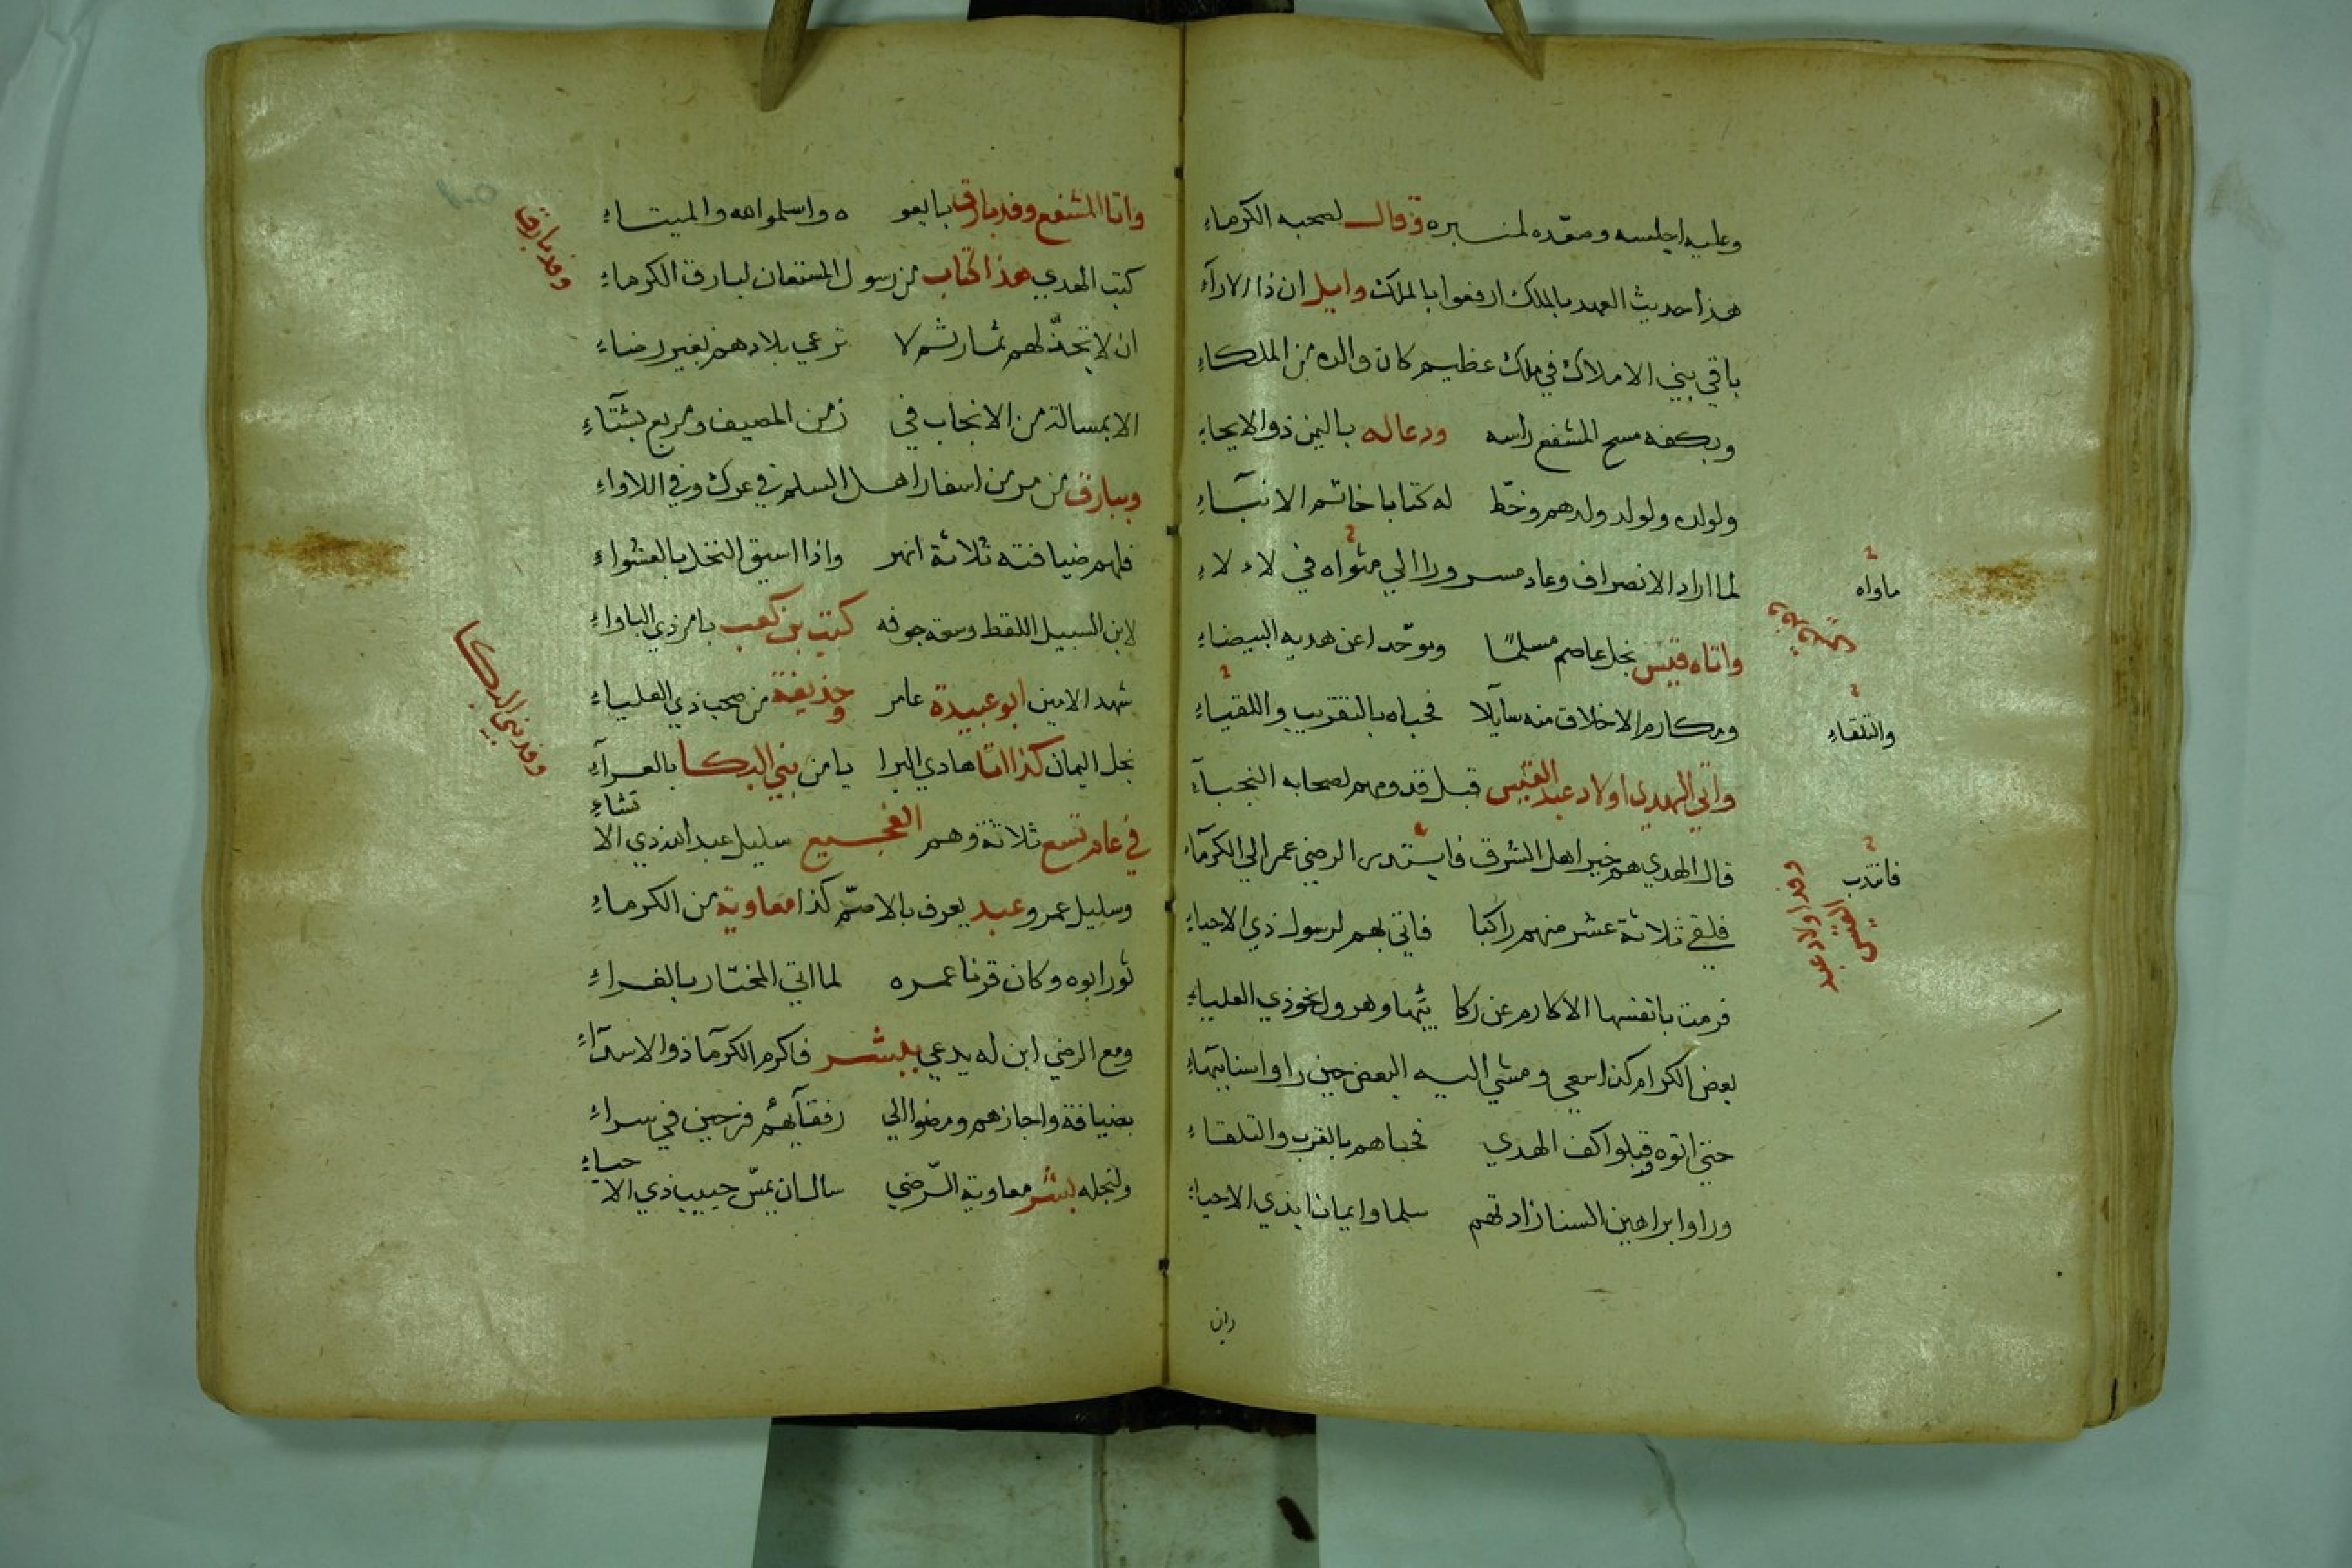 وعليه اجلسه وصعّده لمنبره وقال لصحبه الكرماء
هذا حديث العهد بالملك ارفعوا بالملك وايل ان ذا الاراء
باقي بني الاملاك في ملك عظيم كان والده من الملكاء
وبكفه مسح المشفع راسه ودعا له باليمن ذو الايحاء
ولولده ولولد ولدهم وخط له كتابا خاتم الانبآء
لما اراد الانصراف وعاد مسرورا الي مثواه في لاء لاء
ماواه
واتاه قيس نجل عاصم مسلمًا وموحّدا عن هديه البيضاء
ومكارم الاخلاق منه سآيلا فحباه بالتقريب واللقياء
والتلقاء
واتي الهدي اولاد عبد القيس قبل قدومهم لصحابه النجبآء
قال الهدي هم خير اهل الشرق فا الرضي عمر الي الكرمآء
فانتدب
وفد اولاد عبد القيس
فلقي ثلاثة عشر منهم راكبا فاتي بهم لرسول ذي الاحياء
فرمت بانفسها الاكارم عن ركا يبها وهرول نحو ذي العلياء
بعض الكرام كذا سعي ومشي اليه البعض حين راوا سنا بهاء
حتي اتوه وقبلوا كف الهدي فحباهم بالقرب والتلقاء
وراوا براهين السنا زادتهم سلما وايمانا بذي الاحياء
واتا المشفع وفد بارق بايعو ه واسلموا الله والميتاء
وفد بارق
كتب الهدي هذا كتاب من رسول المستعان لبارق الكرماء
ان لا تجذّ لهم ثمار ثم لا ترعي بلادهم بغير رضاء
الا بمسالة من الانجاب في زمن المصيف ومربع بشتآء
وببارق من مر من اسفار اهل السلم في عرك وفي اللاواء
فلهم ضيافته ثلاثة انهر واذا اسيق النخل بالعشواء
لابن السبيل اللقط وسقه جوفه كتب بن كعب بامر ذي الباواء
شهد الامين ابو عبيدة عامر وحذيفة من صحب ذي العلياء
نجل اليمان كذا اتا هادي البرا يا من بني البكا بالعرآء
وفد بني البكا
في عام تسع ثلاثة وهم الفجيع سليل عبد الله ذي الا نشاء
وسليل عمرو عبد يعرف بالاصمّ كذا معاوية من الكرماء
ثور ابوه وكان قرنا عمره لما اتي المختار بالغراء
ومع الرضي ابن له يدعي ببشر فاكرم الكرمآ ذو الاسدآء
بضيافة واجازهم ومضوا الي رفقآيهم فرحين في سراء
ولنجله بشر معاوية الرّضي سال ان يمسّ حبيب ذي الا حياء